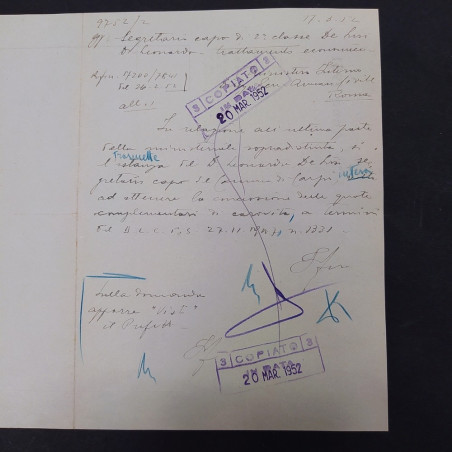 9752/2
Segretario capo di 2ª classe De
Dr Leonardo - trattamento economico
Rifer. 17200/
del 26.2.52
all. 1
Ministero Interno
Roma
3 COPIATO 3
IN DATA
20 MAR. 1952
In relazione all'ultima parte
della ministeriale sopradistinta, si
trasmette
l'istanza del Dr Leonardo De se-
gretario capo del Comune di Carpi intesa
ad ottenere la concessione delle quote
complementari di carovita, a termini
del D.L.C.P.S. 27.11.1947 n. 1331.
Sulla domanda
apporre "Visto"
il Prefetto
3 COPIATO 3
IN DATA
20 MAR. 1952